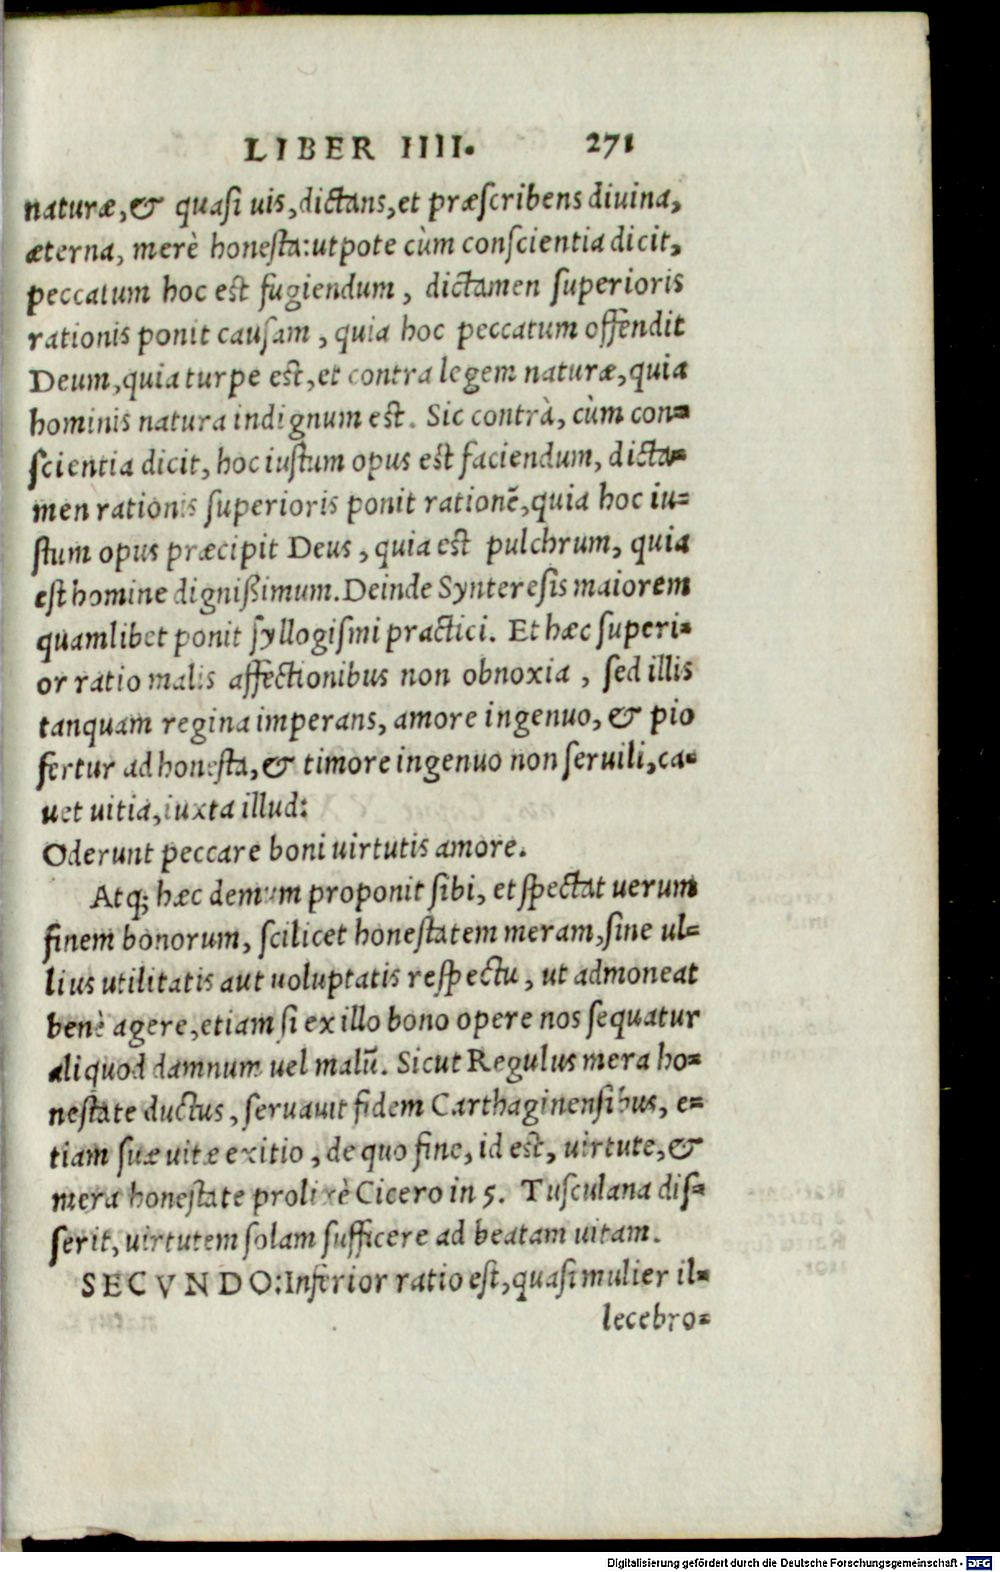 LIBER IIII. 271
naturæ, & quasi uis, dictans, et præscribens diuina,
æterna, merè honesta: utpote cùm conscientia dicit,
peccatum hoc est fugiendum, dictamen superioris
rationis ponit causam, quia hoc peccatum offendit
Deum, quia turpe est, et contra legem naturæ, quia
hominis natura indignum est. Sic contrà, cùm con-
scientia dicit, hoc iustum opus est faciendum, dicta-
men rationis superioris ponit rationē, quia hoc iu-
stum opus præcipit Deus, quia est pulchrum, quia
est homine dignißimum. Deinde Synteresis maiorem
quamlibet ponit syllogismi practici. Et hæc superi-
or ratio malis affectionibus non obnoxia, sed illis
tanquam regina imperans, amore ingenuo, & pio
fertur ad honesta, & timore ingenuo non seruili, ca-
uet uitia, iuxta illud:
Oderunt peccare boni uirtutis amore.
Atq; hæc demum proponit sibi, et spectat uerum
finem bonorum, scilicet honestatem meram, sine ul-
lius utilitatis aut uoluptatis respectu, ut admoneat
benè agere, etiam si ex illo bono opere nos sequatur
aliquod damnum uel malū. Sicut Regulus mera ho-
nestate ductus, seruauit fidem Carthaginensibus, e-
tiam suæ uitæ exitio, de quo fine, id est, uirtute, &
mera honestate prolixè Cicero in 5. Tusculana dis-
serit, uirtutem solam sufficere ad beatam uitam.
SECVNDO: Inferior ratio est, quasi mulier il-
lecebro-
Digitalisierung gefördert durch die Deutsche Forschungsgemeinschaft - DFG